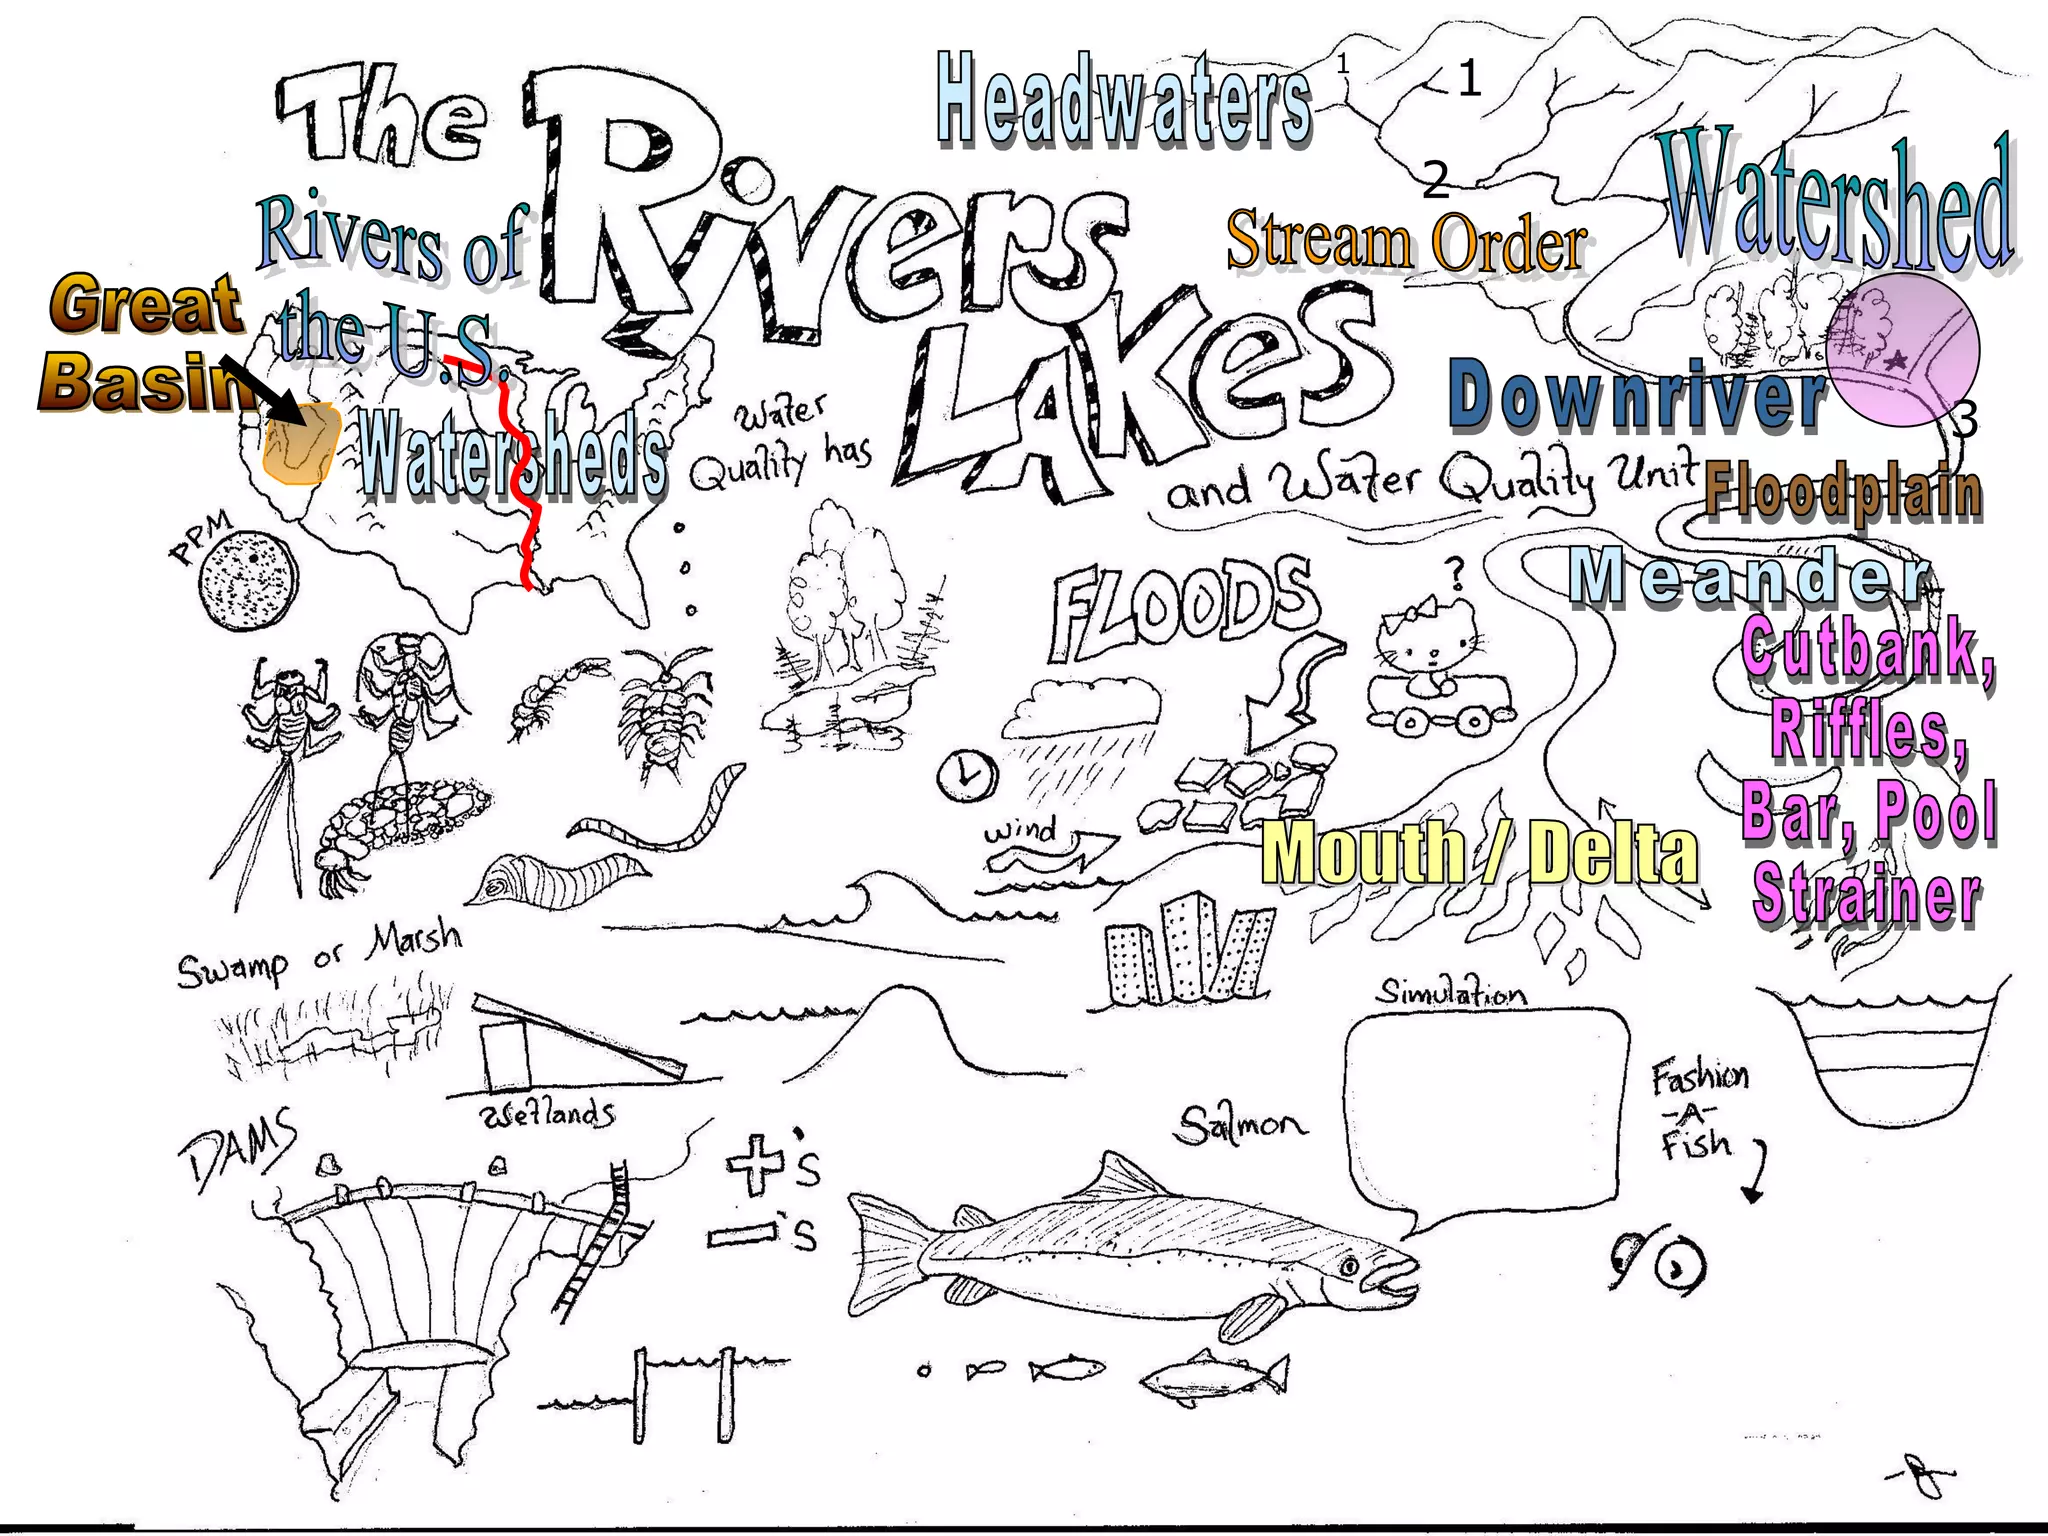 The
Rivers
LAKes
and Water Quality Unit
Headwaters
1
1
2
Stream Order
Watershed
Rivers of
the U.S.
Great
Basin
Watersheds
Water
Quality has
Downriver
3
Floodplain
Meander
Cutbank,
Riffles,
Bar, Pool
Strainer
PPM
FLOODS
?
wind
Mouth / Delta
Swamp or Marsh
Wetlands
Simulation
Fashion
-A-
Fish
Salmon
DAMS
+'s
-'s